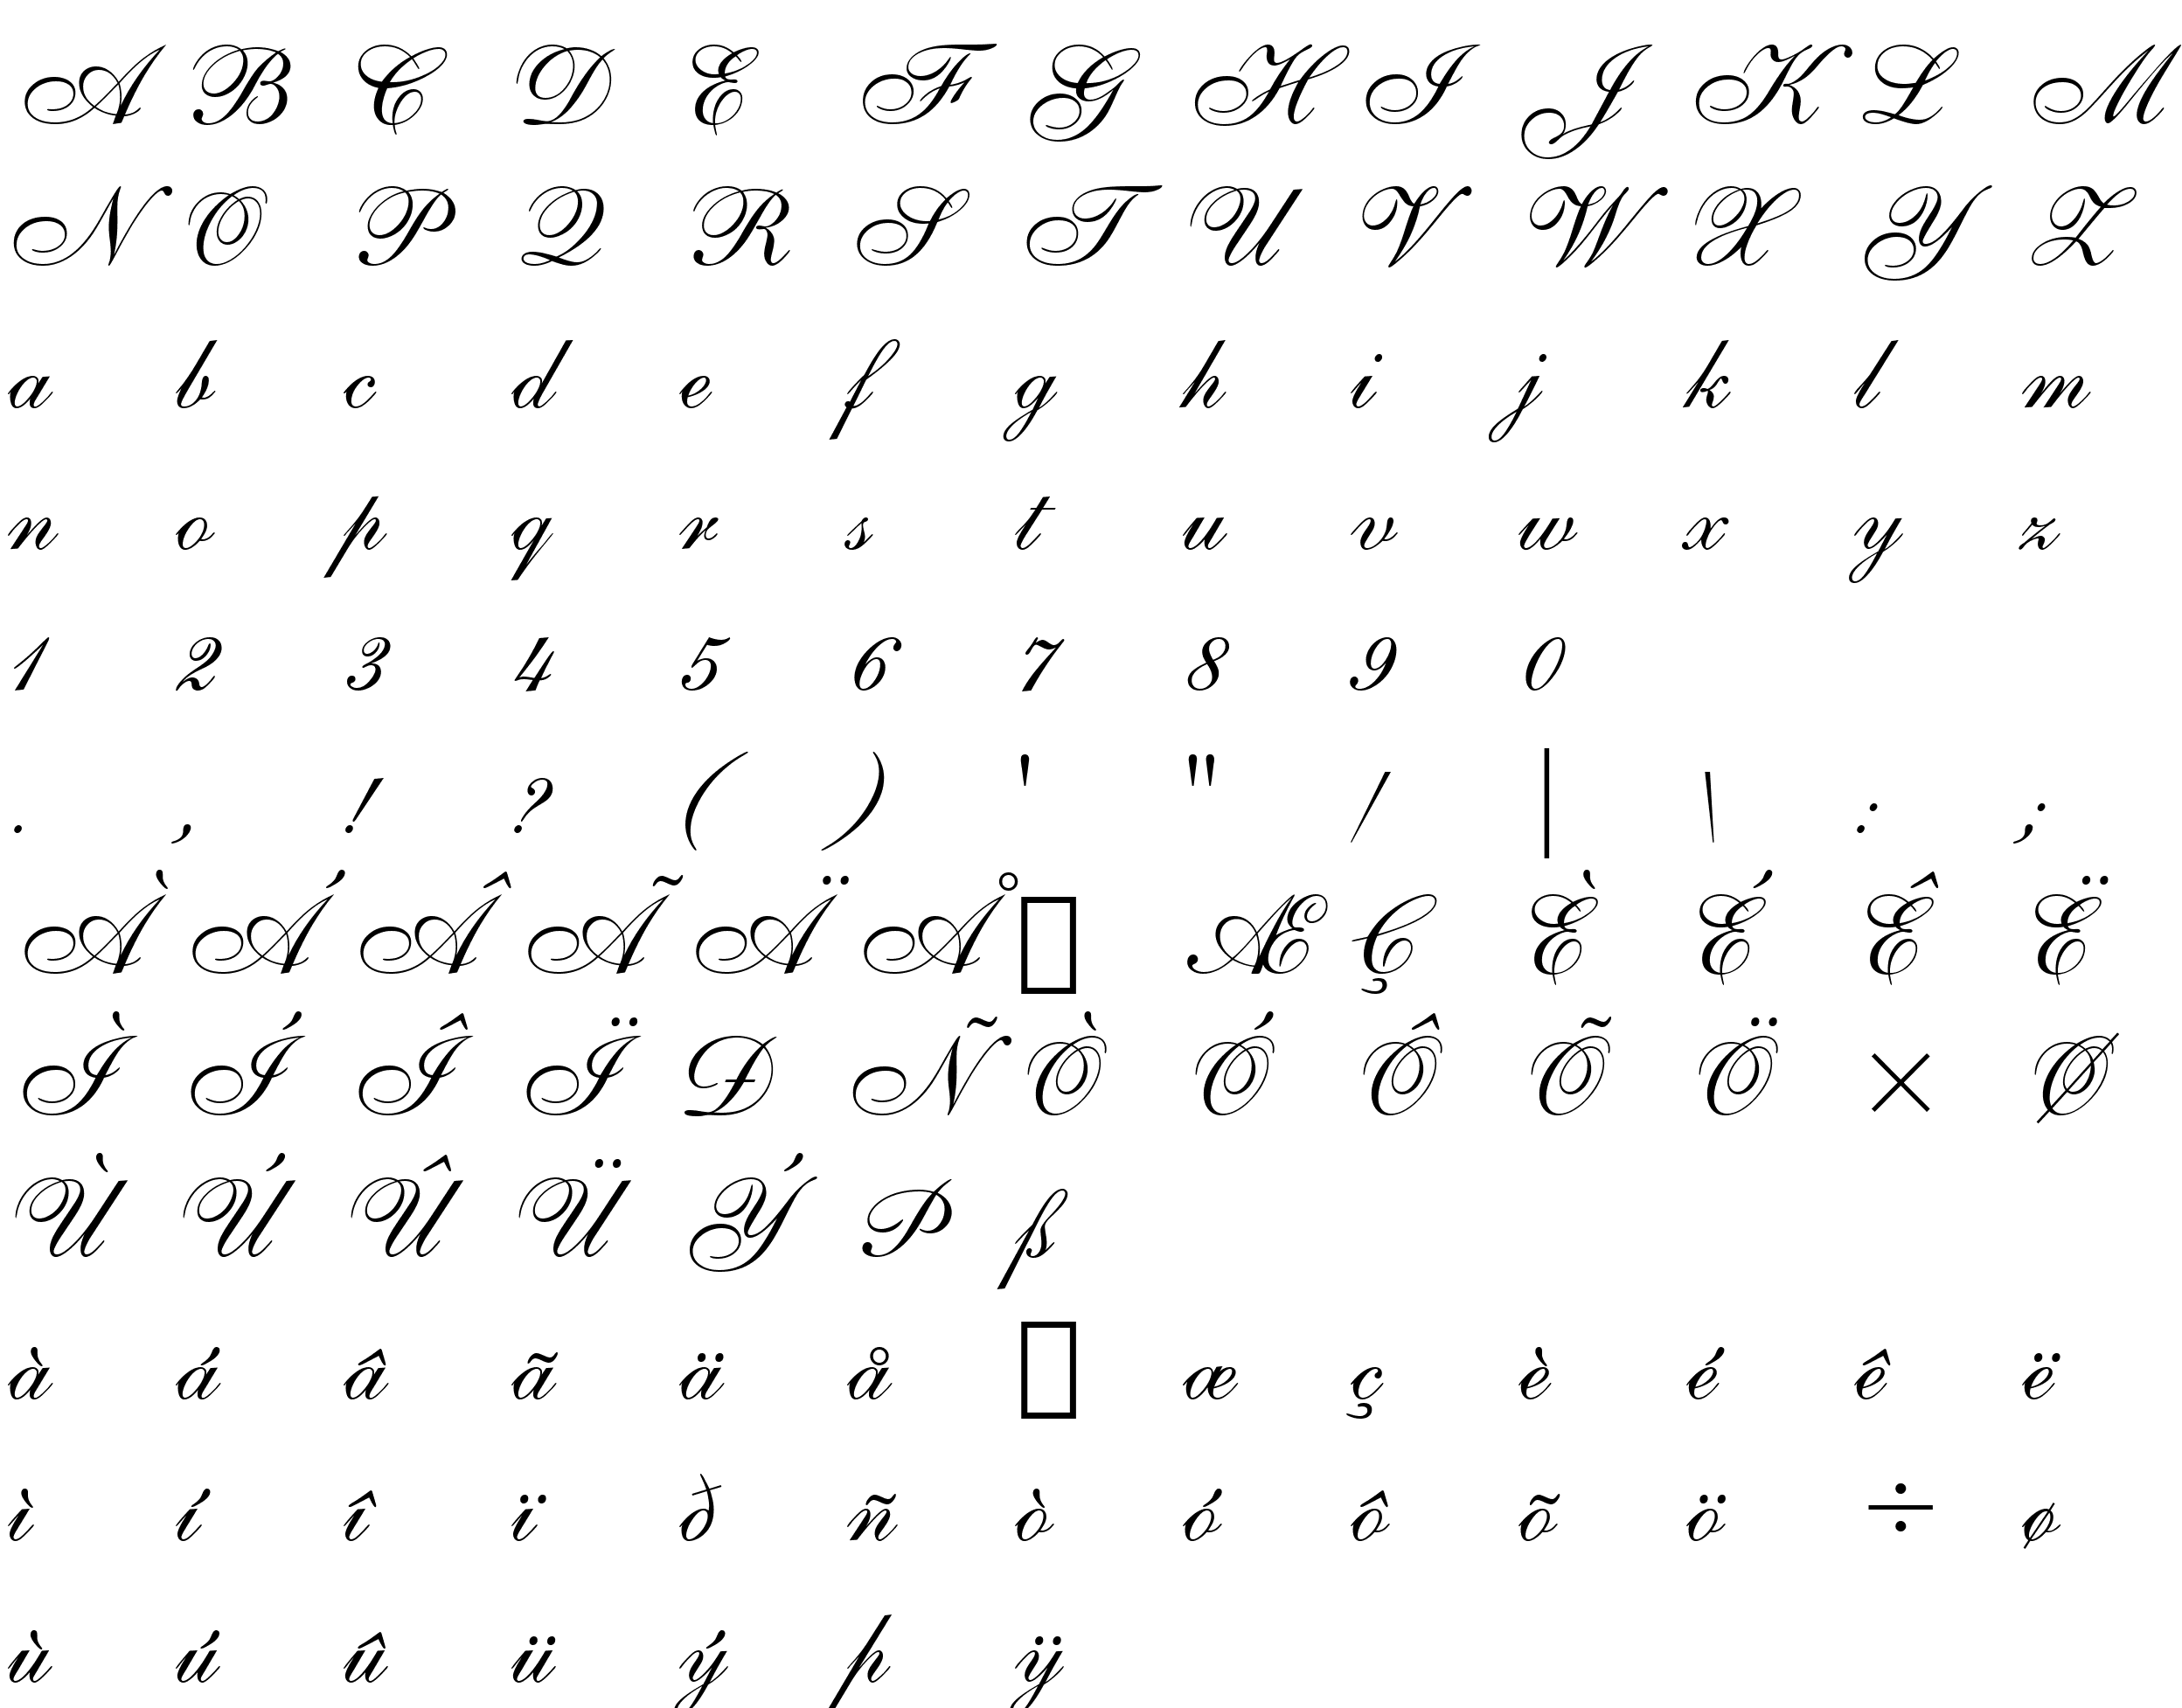 A B C D E F G H I J K L M
N O P Q R S T U V W X Y Z
a b c d e f g h i j k l m
n o p q r s t u v w x y z
1 2 3 4 5 6 7 8 9 0
. , ! ? ( ) ' " / | \ : ;
À Á Â Ã Ä Å Æ Ç È É Ê Ë
Ì Í Î Ï Ð Ñ Ò Ó Ô Õ Ö × Ø
Ù Ú Û Ü Ý Þ ß
à á â ã ä å æ ç è é ê ë
ì í î ï ð ñ ò ó ô õ ö ÷ ø
ù ú û ü ý þ ÿ